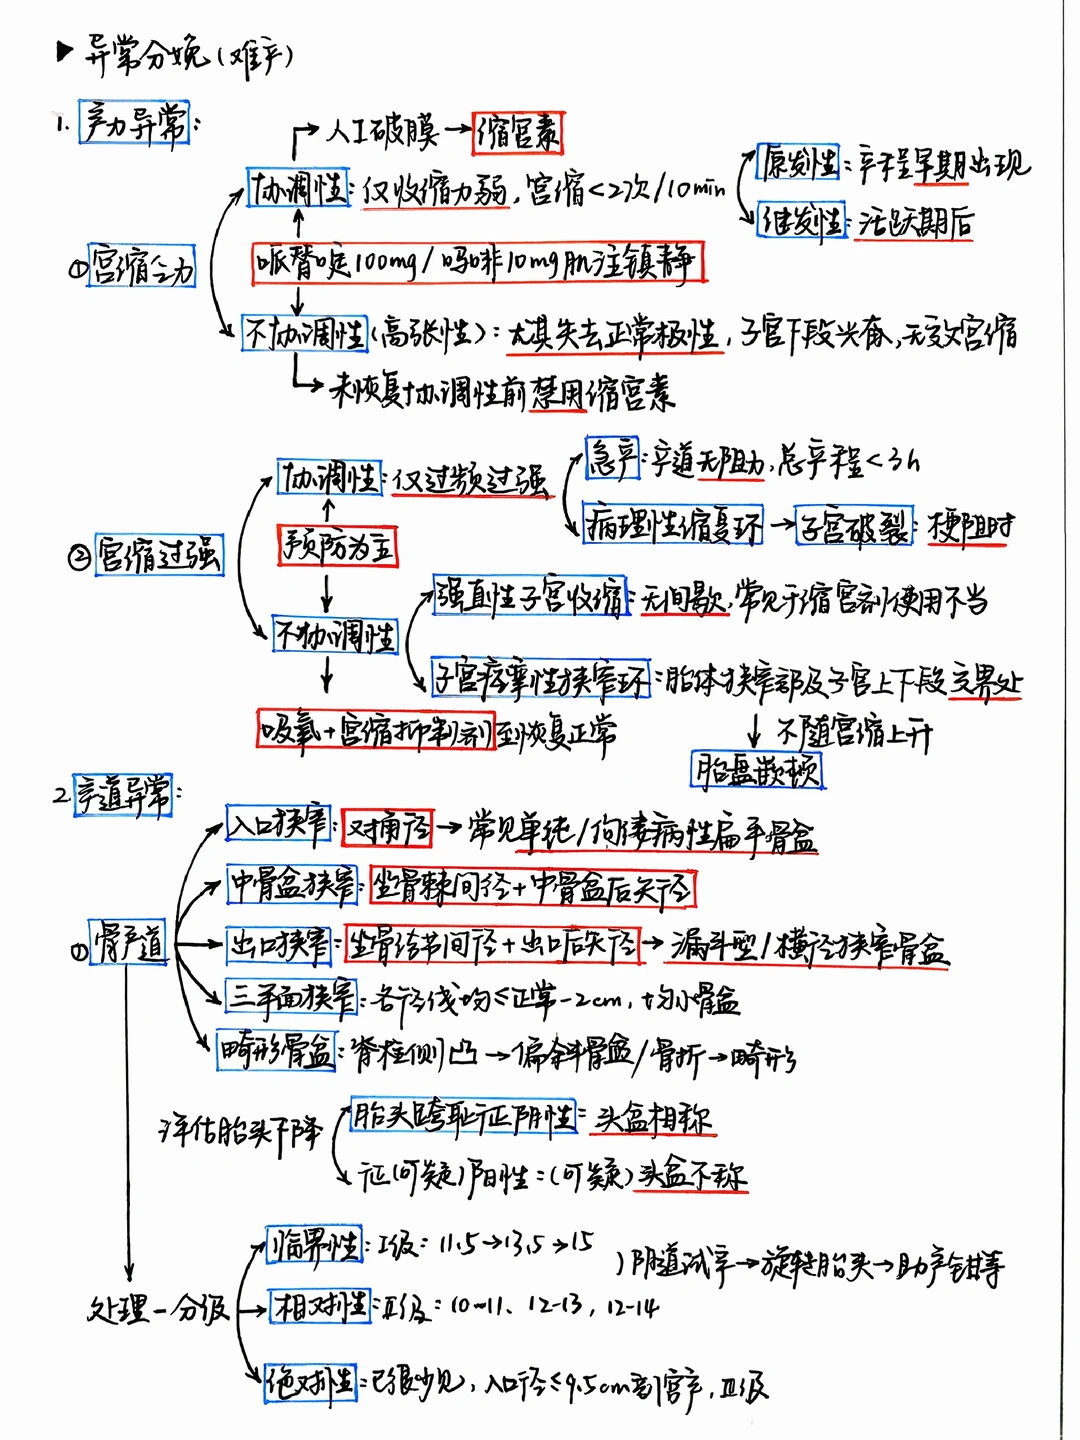 ▶ 异常分娩(难产)
1. 产力异常:
人工破膜→缩宫素
协调性:仅收缩力弱,宫缩<2次/10min
原发性:产程早期出现
继发性:活跃期后
①宫缩乏力
哌替啶100mg/吗啡10mg肌注镇静
不协调性(高张性):尤其失去正常极性,子宫下段兴奋,无效宫缩
未恢复协调性前禁用缩宫素
协调性:仅过频过强
急产:产道无阻力,总产程<3h
病理性缩复环→子宫破裂:梗阻时
预防为主
②宫缩过强
强直性子宫收缩:无间歇,常见于缩宫剂使用不当
不协调性
子宫痉挛性狭窄环:胎体狭窄部及子宫上下段交界处
吸氧+宫缩抑制剂到恢复正常
不随宫缩上升
胎盘嵌顿
2.产道异常:
入口狭窄:对角径→常见单纯/佝偻病性扁平骨盆
中骨盆狭窄:坐骨棘间径+中骨盆后矢径
①骨产道
出口狭窄:坐骨结节间径+出口后矢径→漏斗型/横径狭窄骨盆
三平面狭窄:各径线均≤正常-2cm,均小骨盆
畸形骨盆:脊柱侧凸→偏斜骨盆/骨折→畸形
评估胎头下降
胎头跨耻征阴性:头盆相称
征(可疑)阳性:(可疑)头盆不称
临界性:I级:11.5→13.5→15
)阴道试产→旋转胎头→助产钳等
处理-分级
相对性:II级:10~11、12-13,12-14
绝对性:已很少见,入口径≤9.5cm剖宫产,III级